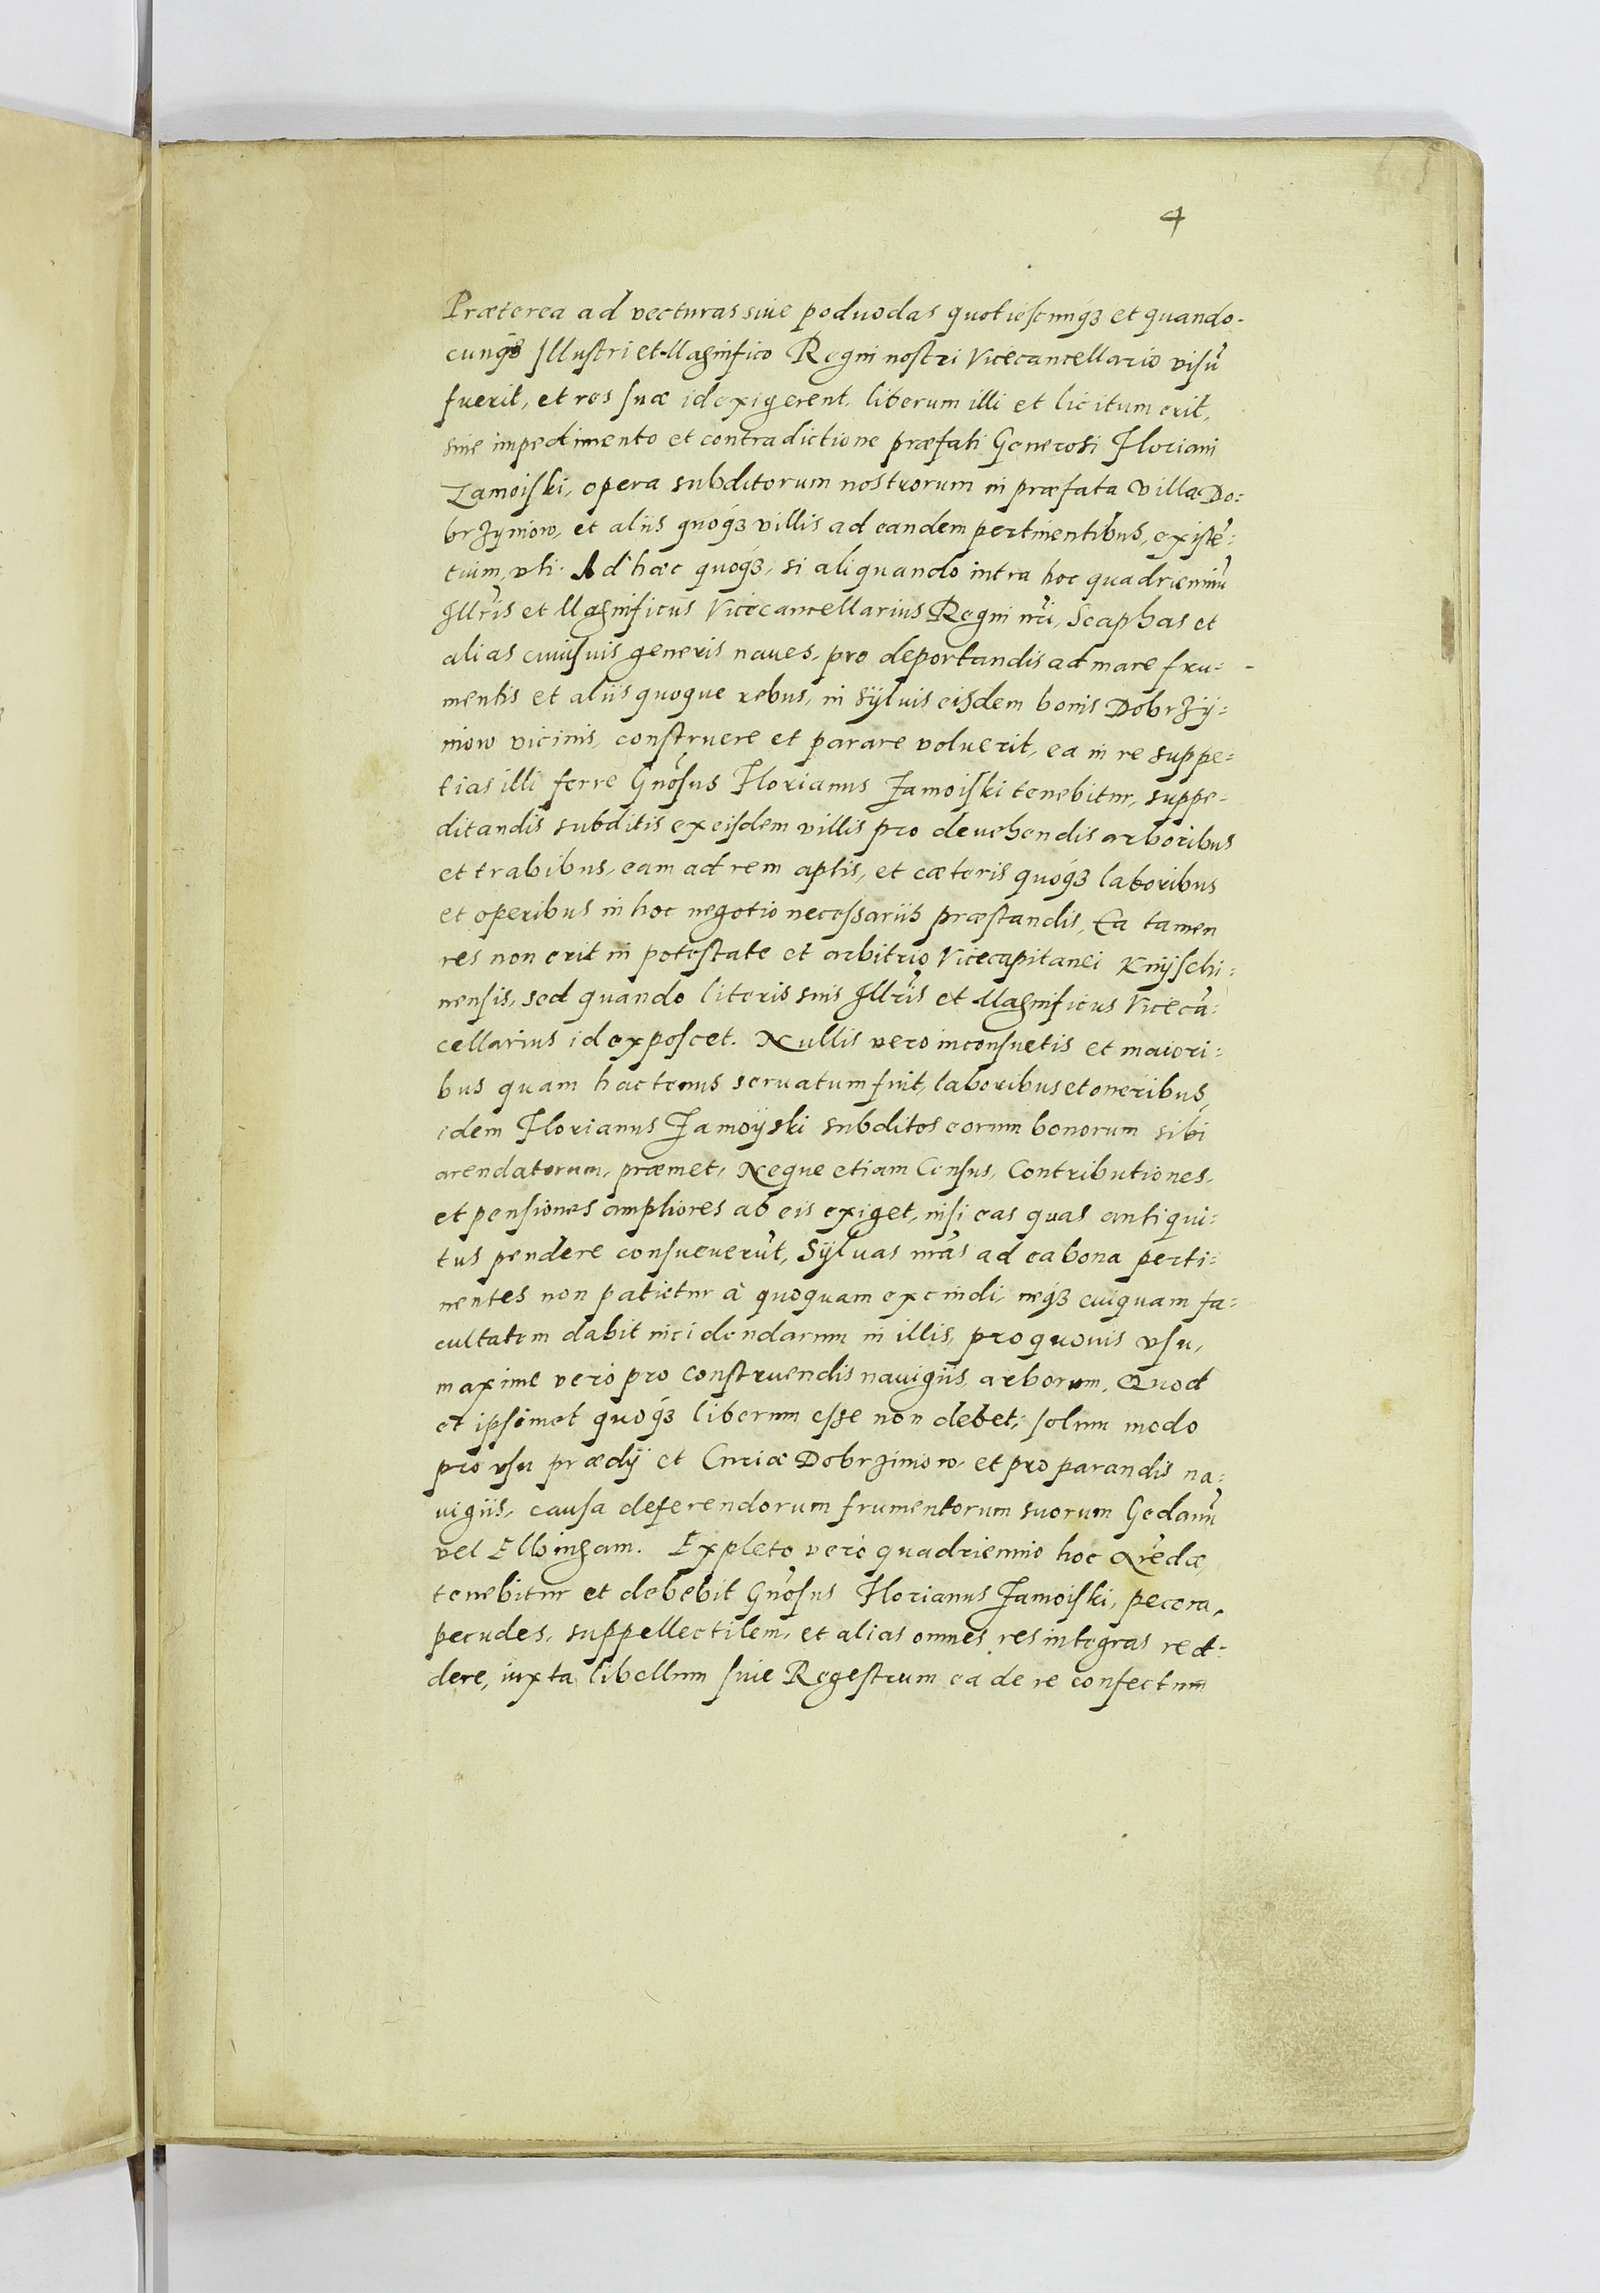 4
Præterea ad vecturas siue poduodas quotiescunqȝ et quando-
cunqȝ Illustri et Magnifico Regni nostri Vicecancellario visũ
fuerit, et res suæ id exigerent, liberum illi et licitum erit,
sine impedimento et contradictione præfati Generosi Floriani
Zamoiski, opera subditorum nostrorum in præfata Villa Do=
brzyniow, et aliis quoqȝ villis ad eandem pertinentibus, existẽ=
tium, vti. Ad hæc quoqȝ, si aliquando intra hoc quadrienniũ
Illr̃is et Magnificus Vicecancellarius Regni nr̃i, Scaphas et
alias cuiusuis generis naues, pro deportandis ad mare fru=
mentis et aliis quoque rebus, in sÿluis eisdem bonis Dobrzÿ=
niow vicinis, construere et parare voluerit, ea in re suppe=
tias illi ferre Gnõsus Florianus Zamoiski tenebitur, suppe-
ditandis subditis ex eisdem villis pro deuehendis arboribus
et trabibus, eam ad rem aptis, et cæteris quoqȝ laboribus
et operibus in hoc negotio necessariis præstandis, Ea tamen
res non erit in potestate et arbitrio Vicecapitanei Knÿschi=
nensis, sed quando literis suis Illr̃is et Magnificus Vicecã=
cellarius id exposcet. Nullis vero inconsuetis et maiori=
bus quam hactenus seruatum fuit, laboribus et oneribus,
idem Florianus Zamoÿski subditos eorum bonorum sibi
arendatorum, præmet, Neque etiam Census, Contributiones,
et pensiones ampliores ab eis exiget, nisi eas quas antiqui=
tus pendere consueuerũt, Sÿluas nr̃as ad ea bona perti=
nentes non patietur à quoquam excindi, neqȝ cuiquam fa=
cultatem dabit incidendarum in illis, pro quouis vsu,
maxime vero pro construendis nauigiis, arborum, Quod
et ipsimet quoqȝ liberum esse non debet, solum modo
pro vsu prædÿ et Curiæ Dobrziniow, et pro parandis na=
uigiis, causa deferendorum frumentorum suorum Gedanũ
vel Elbingam. Expleto vero quadriennio hoc Arẽdæ,
tenebitur et debebit Gnõsus Florianus Zamoiski, pecora,
pecudes, suppellectilem, et alias omnes res integras red=
dere, iuxta libellum siue Regestrum ea de re confectum